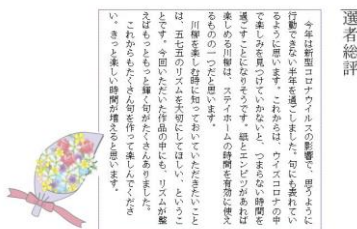 選者総評
今年は新型コロナウイルスの影響で、思うように
行動できない半年を過ごしました。句にも表れてい
るように思います。これからは、ウイズコロナの中
で楽しみを見つけていかないと、つまらない時間を
過ごすことになりそうです。紙とエンピツがあれば
楽しめる川柳は、ステイホームの時間を有効に使え
るものの一つだと思います。
川柳を楽しむ時に知っておいていただきたいこと
は、五七五のリズムを大切にしてほしい、というこ
とです。今回いただいた作品の中にも、リズムが整
えばもっともっと輝く句がたくさんありました。
これからもたくさん句を作って楽しんでくださ
い。きっと楽しい時間が増えると思います。